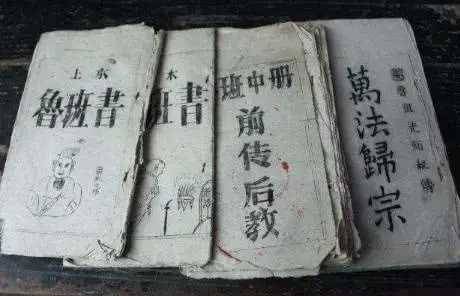 上永
魯班書
木
班書
班中册
前传后教
萬法歸宗